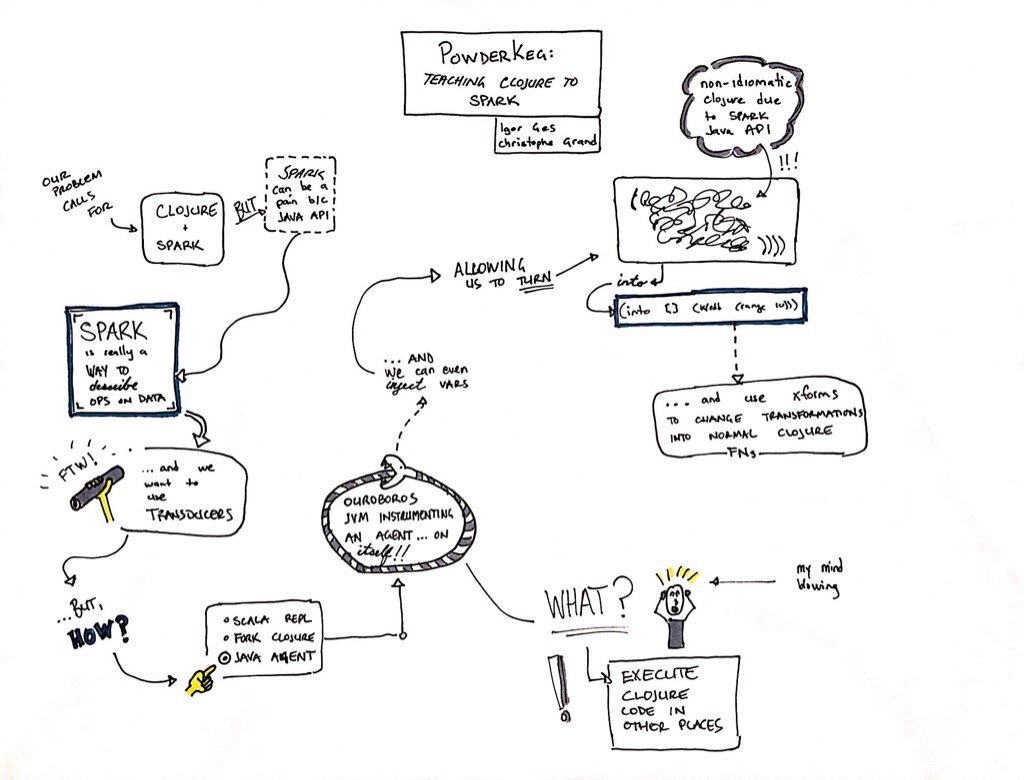 POWDERKEG:
TEACHING CLOJURE TO
SPARK
Igor Ges
christophe Grand
non-idiomatic
clojure due
to SPARK
Java API
!!!
OUR
PROBLEM
CALLS
FOR
CLOJURE
+
SPARK
BUT
SPARK
can be a
pain b/c
JAVA API
SPARK
is really a
WAY TO
describe
OPS ON DATA
FTW!
... and we
want to
use
TRANSDUCERS
...BUT,
HOW?
SCALA REPL
FORK CLOJURE
JAVA AGENT
OUROBOROS
JVM INSTRUMENTING
AN AGENT... ON
itself!!
... AND
we can even
inject VARS
ALLOWING
US TO TURN
))))
into
(into [] (range 10)))
.... and use xforms
TO CHANGE TRANSFORMATIONS
INTO NORMAL CLOJURE
FNs
WHAT?
my mind
blowing
!
EXECUTE
CLOJURE
CODE IN
OTHER PLACES